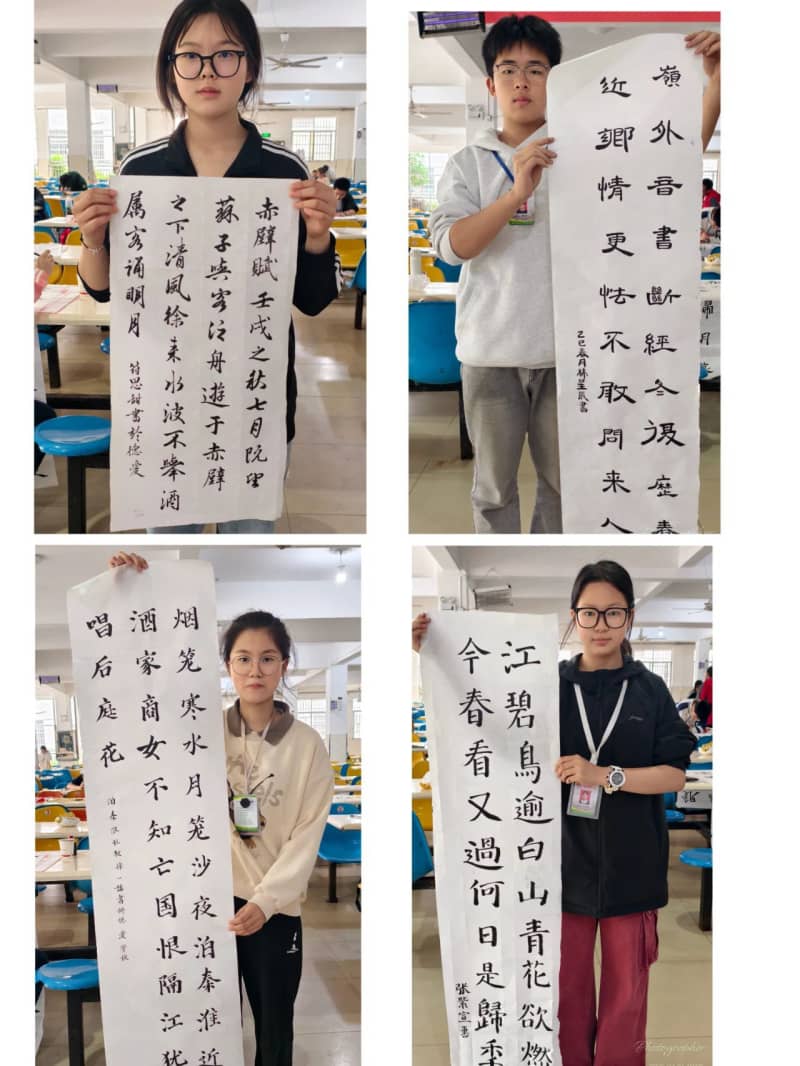 赤壁賦壬戌之秋七月既望
蘇子與客泛舟遊于赤壁
之下清風徐来水波不舉酒
属客诵明月
符思甜書於德愛
嶺外音書斷經冬復歷春
近鄉情更怯不敢問来人
乙巳春月林
書
烟笼寒水月笼沙夜泊秦淮近
酒家商女不知亡国恨隔江犹
唱后庭花
泊秦淮杜牧詩一首
江碧鳥逾白山青花欲燃
今春看又過何日是歸季
张紫宣書
Photographer